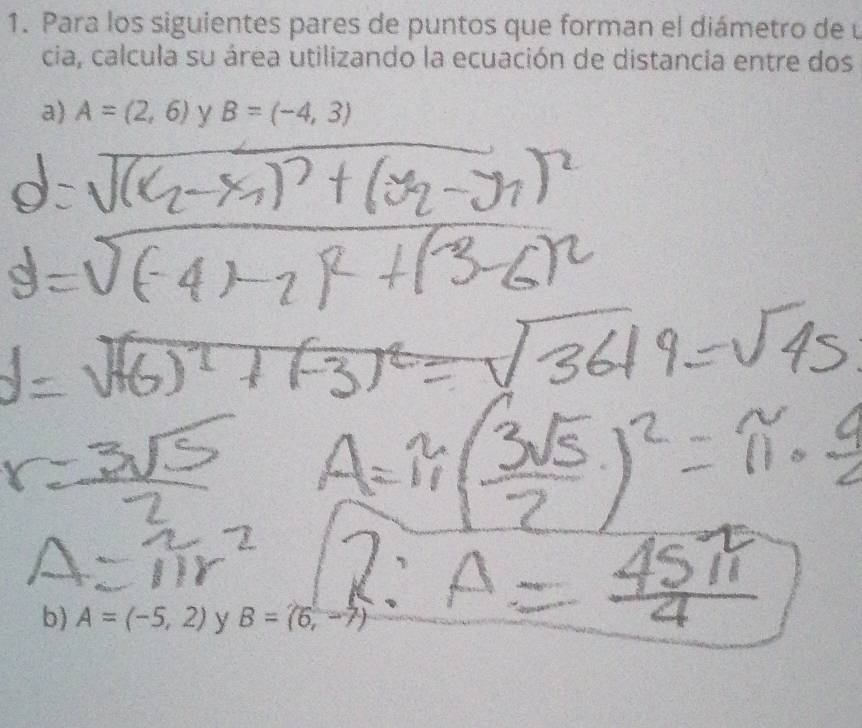 1. Para los siguientes pares de puntos que forman el diámetro de
cia, calcula su área utilizando la ecuación de distancia entre dos
a) A = (2, 6) y B = (−4, 3)
d=√(x₂-x₁)²+(y₂-y₁)²
d=√(-4)-2)²+(3-6)²
d=√(-6)²+(-3)²=√36+9=√45
r=3√5/2 A=π(3√5/2)²=π·
A=πr² R: A=45π/4
b) A = (−5, 2) y B = (6, −7)